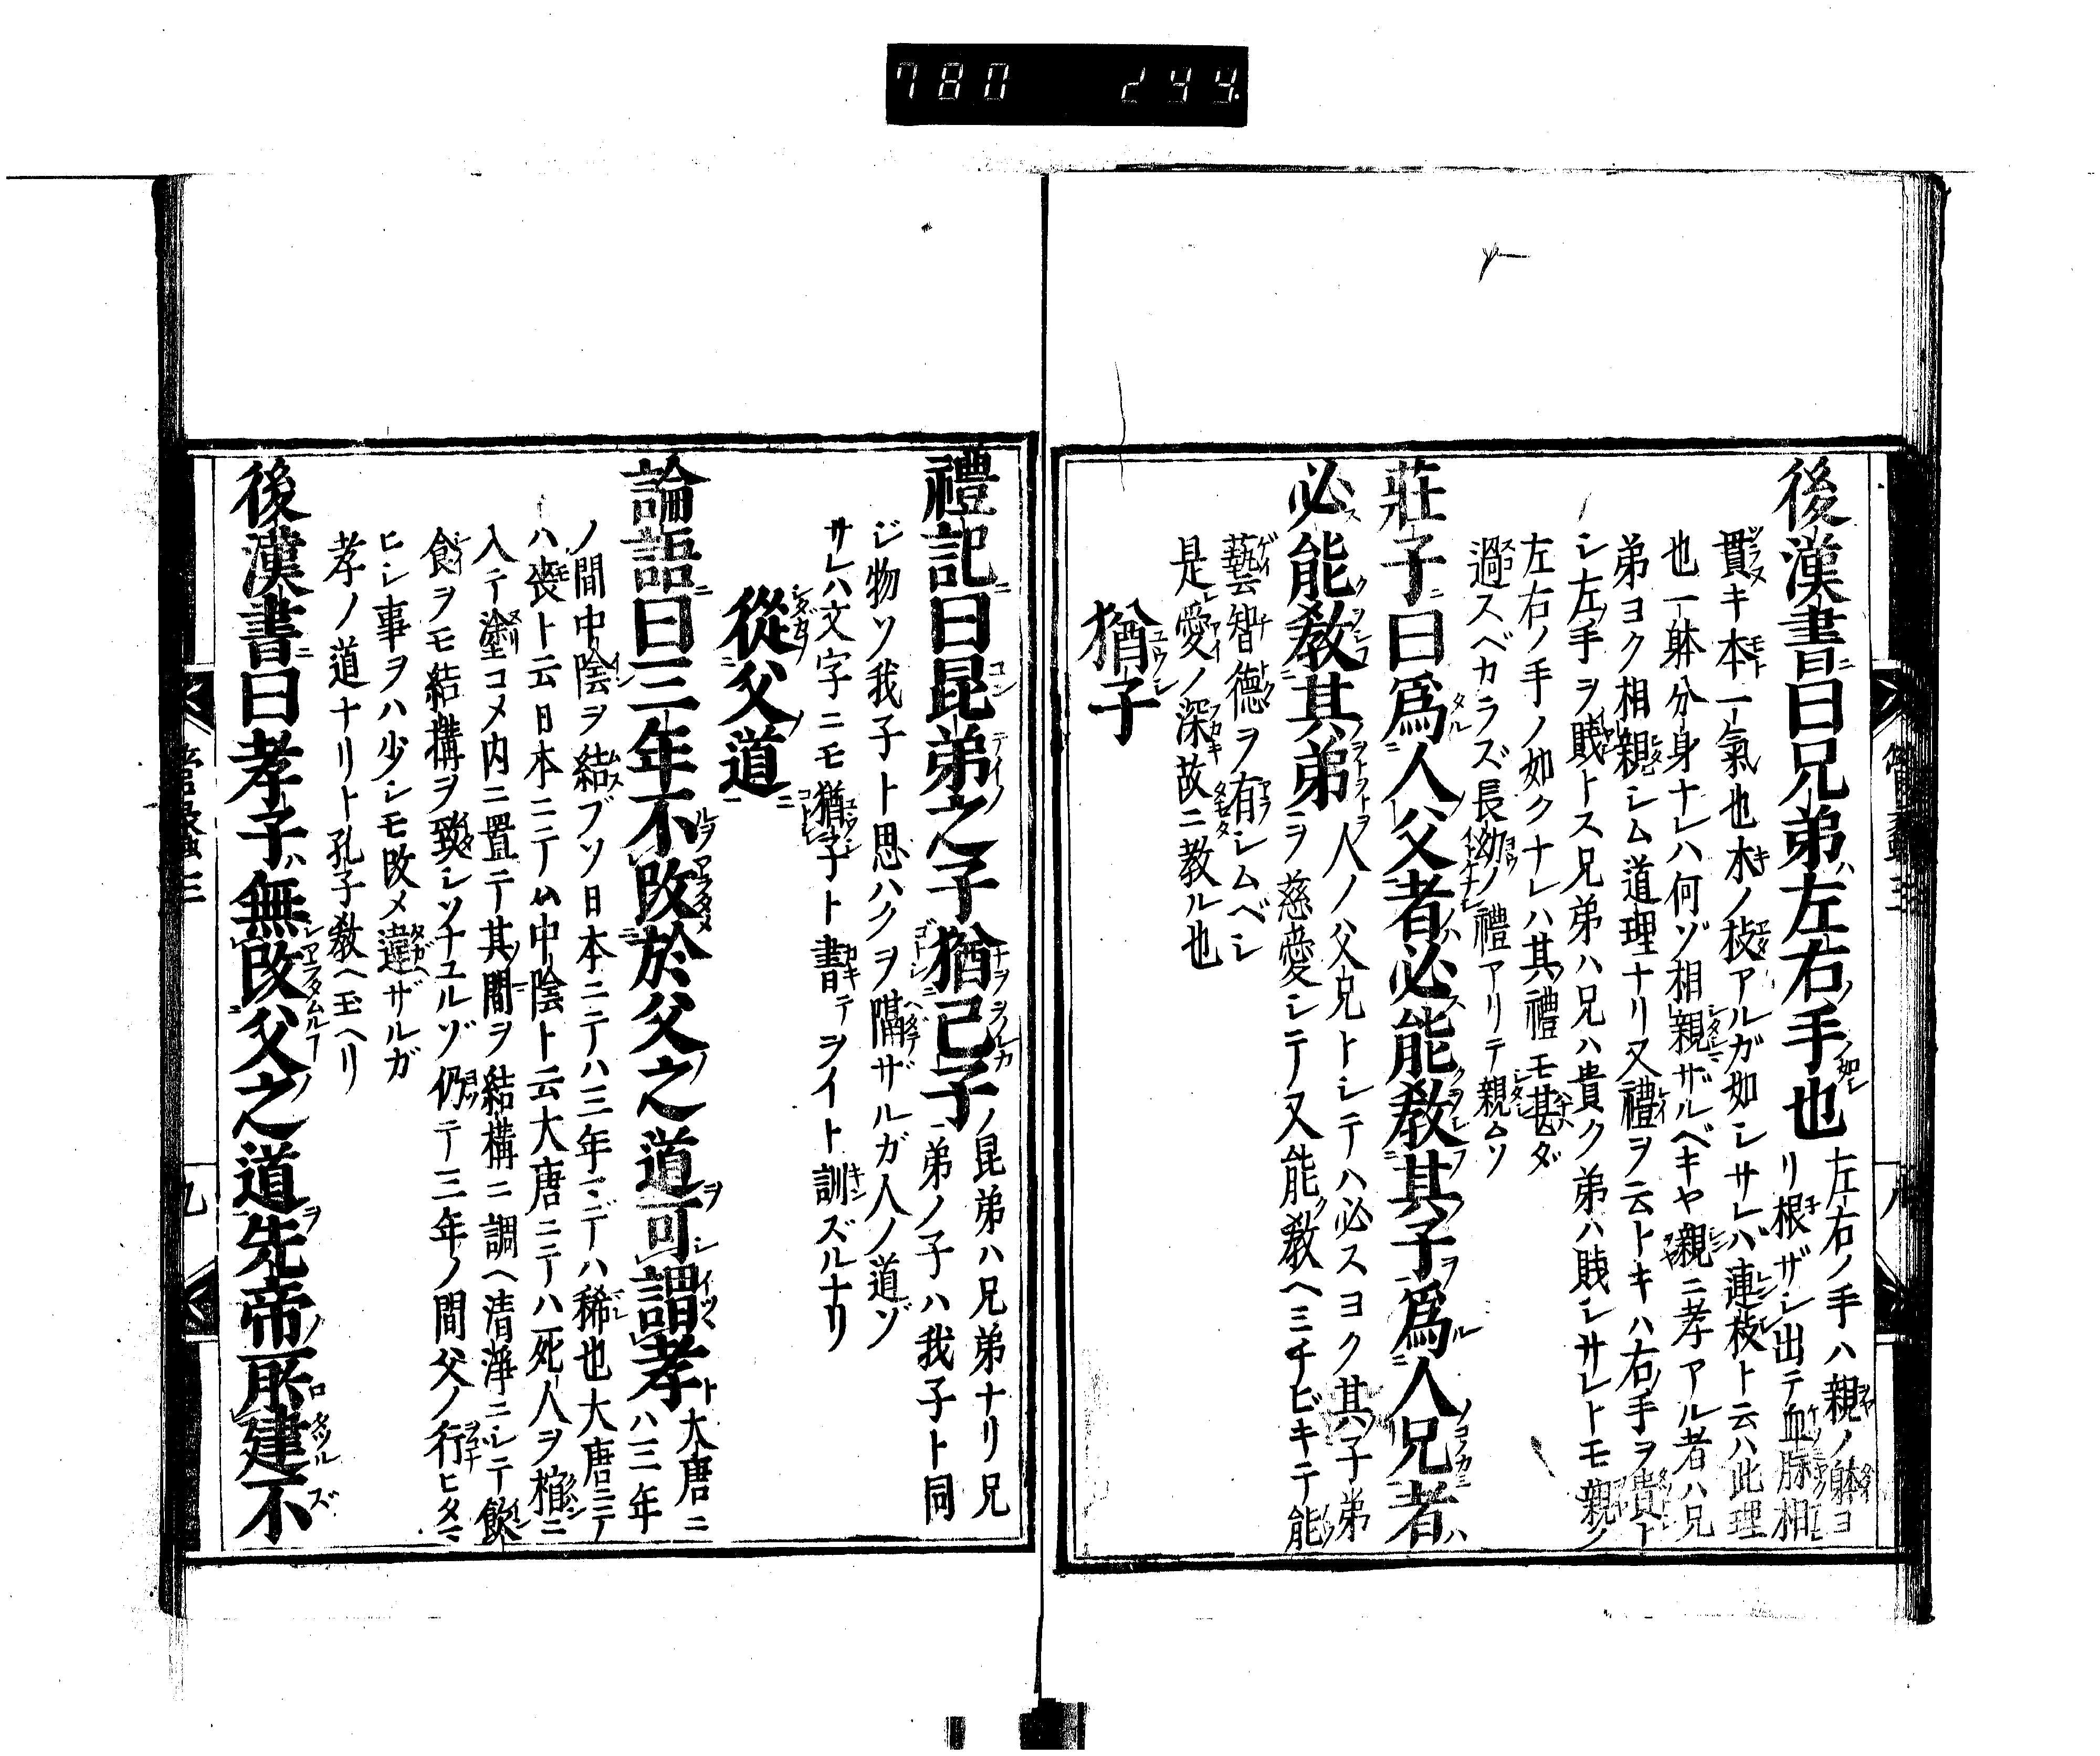 780 244
後漢書曰兄弟左右手也左右ノ手ハ親ノ躰ヨ
リ根ザシ出テ血脉相
貫キ本一氣也木ノ枝アルガ如シサレバ連枝ト云ハ此理
也一躰分身ナレハ何ゾ相親ザルベキヤ親ニ孝アル者ハ兄
弟ヨク相親シム道理ナリ又禮ヲ云トキハ右手ヲ貴ト
シ左手ヲ賤トス兄弟ハ兄ハ貴ク弟ハ賤シサレトモ親ノ
左右ノ手ノ如クナレハ其禮モ甚ダ
過スベカラズ長幼ノ禮アリテ親ムソ
莊子曰爲人父者必能敎其子爲人兄者
必能敎其弟人ノ父兄トシテハ必スヨク其子弟
ヲ慈愛シテ又能敎ヘミチビキテ能
藝智德ヲ有シムベシ
是愛ノ深故ニ教ル也
猶子
禮記曰昆弟之子猶己子昆弟ハ兄弟ナリ兄
弟ノ子ハ我子ト同
ジ物ソ我子ト思ハクヲ隔ザルガ人ノ道ゾ
サレハ文字ニモ猶子ト書テヲイト訓ズルナリ
從父道
論語曰三年不改於父之道可謂孝大唐ニ
ハ三年
ノ間中陰ヲ結ブソ日本ニテハ三年ニデハ稀也大唐ニテ
ハ喪ト云日本ニテハ中陰ト云大唐ニテハ死人ヲ棺ニ
入テ塗コメ内ニ置テ其間ヲ結構ニ調ヘ清淨ニシテ飮
食ヲモ結構ヲ致シソナユルゾ仍テ三年ノ間父ノ行ヒタマ
ヒシ事ヲハ少シモ改メ違ザルガ
孝ノ道ナリト孔子敎ヘ玉ヘリ
後漢書曰孝子無改父之道先帝所建不